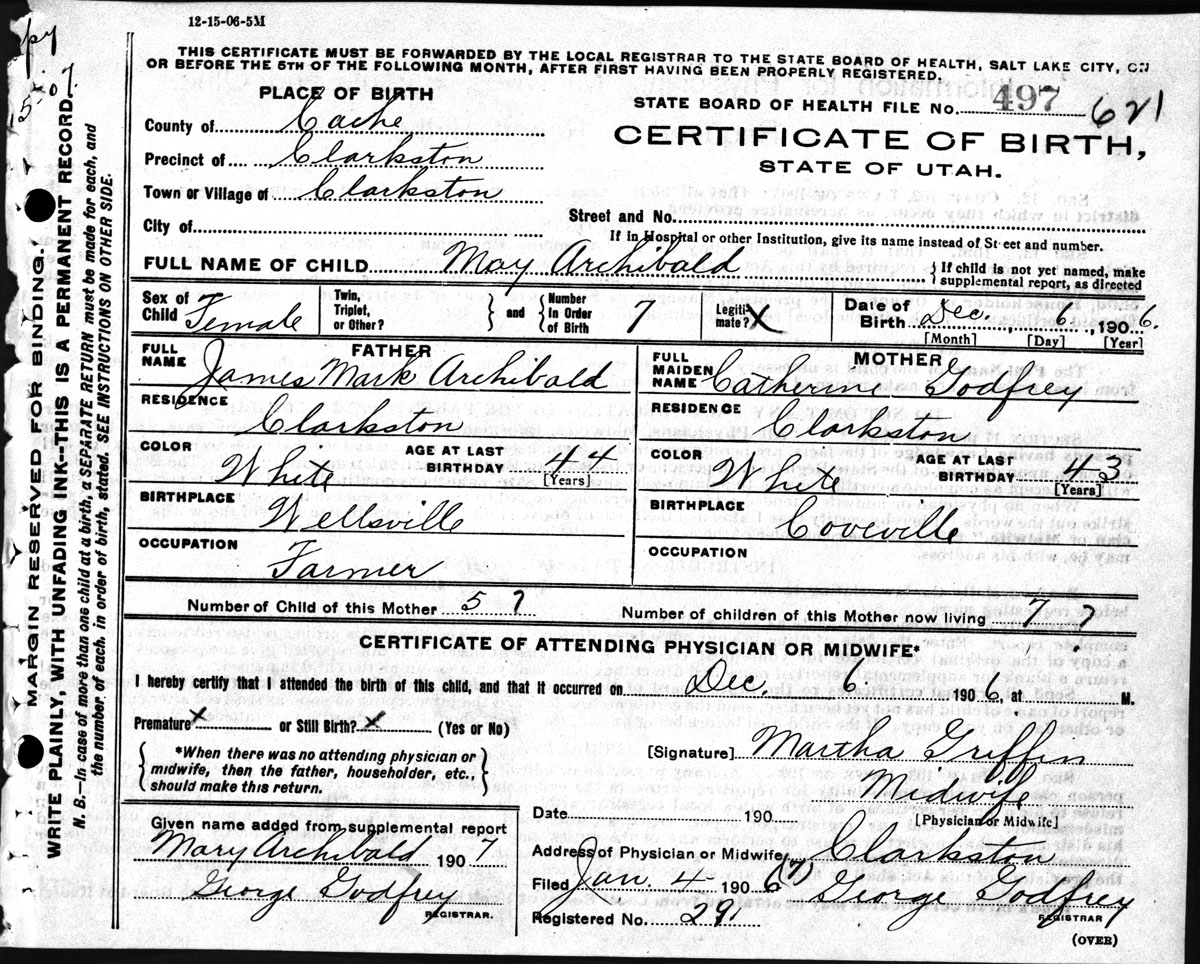 12-15-06-5M
py
5.07.
THIS CERTIFICATE MUST BE FORWARDED BY THE LOCAL REGISTRAR TO THE STATE BOARD OF HEALTH, SALT LAKE CITY, ON
OR BEFORE THE 5TH OF THE FOLLOWING MONTH, AFTER FIRST HAVING BEEN PROPERLY REGISTERED.
MARGIN RESERVED FOR BINDING.
WRITE PLAINLY, WITH UNFADING INK--THIS IS A PERMANENT RECORD.
N. B.—In case of more than one child at a birth, a SEPARATE RETURN must be made for each, and
the number of each, in order of birth, stated. SEE INSTRUCTIONS ON OTHER SIDE.
PLACE OF BIRTH
County of Cache
Precinct of Clarkston
Town or Village of Clarkston
City of
STATE BOARD OF HEALTH FILE No. 497 621
CERTIFICATE OF BIRTH,
STATE OF UTAH.
Street and No.
If in Hospital or other Institution, give its name instead of Street and number.
FULL NAME OF CHILD May Archibald
If child is not yet named, make
supplemental report, as directed
Sex of Child Female
Twin, Triplet, or Other? and Number In Order of Birth 7
Legitimate? X
Date of Birth Dec. 6, 1906.
[Month] [Day] [Year]
FATHER
FULL NAME James Mark Archibald
RESIDENCE Clarkston
COLOR White AGE AT LAST BIRTHDAY 44
[Years]
BIRTHPLACE Wellsville
OCCUPATION Farmer
MOTHER
FULL MAIDEN NAME Catherine Godfrey
RESIDENCE Clarkston
COLOR White AGE AT LAST BIRTHDAY 43
[Years]
BIRTHPLACE Coveville
OCCUPATION
Number of Child of this Mother 5 7 Number of children of this Mother now living 7 7
CERTIFICATE OF ATTENDING PHYSICIAN OR MIDWIFE*
I hereby certify that I attended the birth of this child, and that it occurred on Dec. 6 1906, at M.
Premature X or Still Birth? X (Yes or No)
*When there was no attending physician or
midwife, then the father, householder, etc.,
should make this return.
[Signature] Martha Griffin
Midwife
Date 190 [Physician or Midwife]
Given name added from supplemental report
Mary Archibald 1907
George Godfrey
REGISTRAR.
Address of Physician or Midwife Clarkston
Filed Jan. 4 1906 7 George Godfrey
REGISTRAR
Registered No. 29
(OVER)